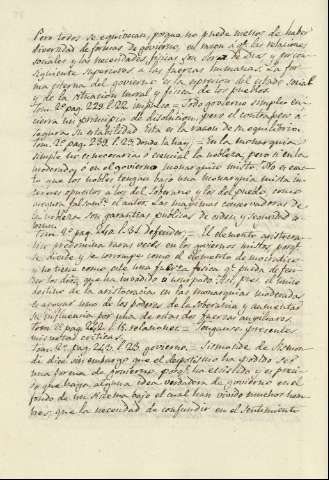 Pero todos se equivocan, porque no puede menos de haber
diversidad de formas de gobierno, en razon a que las relaciones
sociales y las necesidades fisicas son obra de Dios y por con-
siguiente superiores a las fuerzas humanas. La for-
ma eterna del gobierno es la espresion del estado social
y de la situacion moral y fisica de los pueblos.
Tom. 2º pag. 229. l. 22. impulso = Todo gobierno simple en-
cierra un principio de disolucion, pero el contrapeso a-
segura su estabilidad. Esta es la razon de su equilibrio.
Tom. 2º pag. 239. l. 23. donde la hay = En la monarquia
simple no es necesaria o esencial la nobleza, pero si en la
moderada, o en el gobierno monarquico misto. No
que los nobles tengan bajo una monarquia mista in-
tereses opuestos a los del Soberano y los del pueblo, como
el autor. Las maximas conservadoras de
la nobleza son garantias publicas de orden y seguridad
Tom. 2º pag. l. 34. defender = El elemento aristocra-
tico predomina raras veces en los gobiernos mistos porque
se divide y se corrompe como el elemento democratico
y no tiene como este una fuerza fisica que pueda defen-
der los que ha invadido o usurpado. Asi pues el unico
de la aristocracia en las monarquias moderadas
es apoyar uno de los poderes de la soberania y aumentar
su influencia por una de estas dos fuerzas ausiliares
Tom. 2º pag. 242. l. 15. relaciones = Tenganse presentes
mis notas criticas.
Tom. 2º pag. 245. l. 23. gobierno = Sismonde de Sismon-
di dice sin embargo que el despotismo ha podido ser
una forma de gobierno porque ha existido y es preci-
so que haya alguna idea verdadera de gobierno en el
fondo de un sistema bajo el cual han vivido muchos hom-
bres, que la necesidad de confundir en el sentimiento